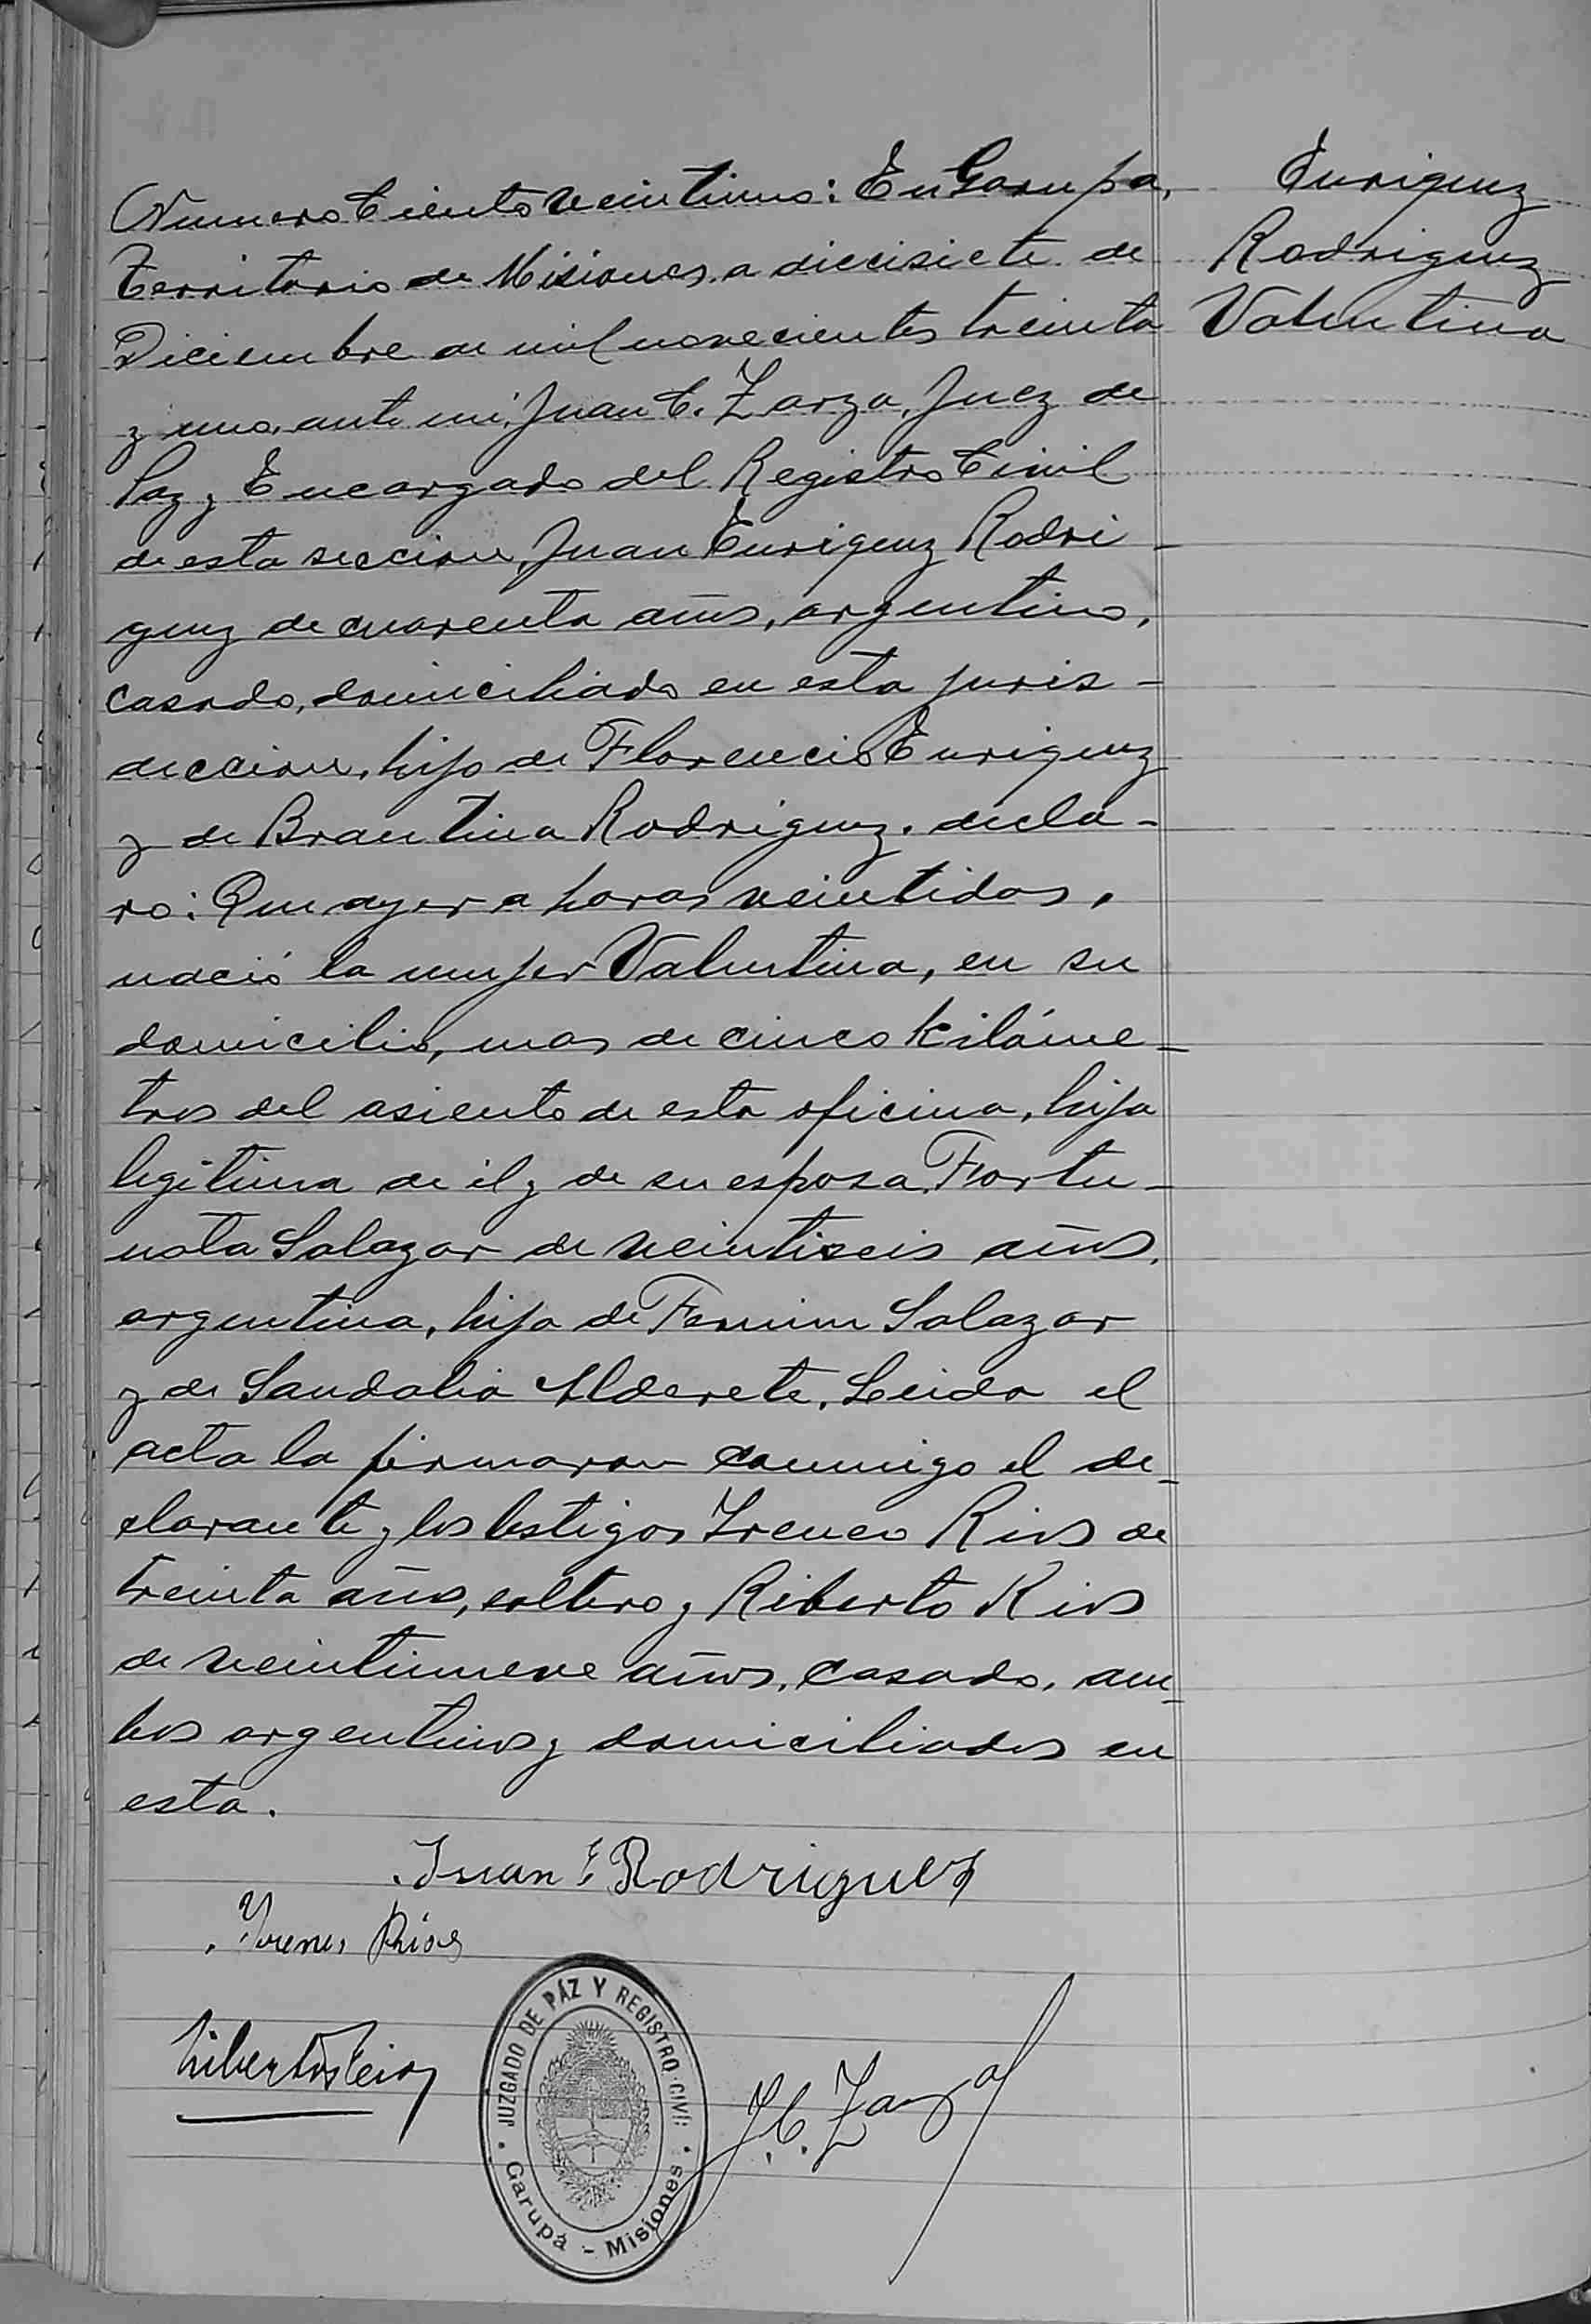 Numero Ciento veintiuno: En Garupa,
Territorio de Misiones a diecisiete de
Diciembre de mil novecientos treinta
y uno, ante mi, Juan C. Zarza, Juez de
Paz y Encargado del Registro Civil
de esta seccion, Juan Enriquez Rodri
guez de cuarenta años, argentino,
casado, domiciliado en esta juris-
diccion, hijo de Florencio Enriquez
y de Brautina Rodriguez. decla-
ro: Que ayer a horas veintidos,
nació la mujer Valentina, en su
domicilio, mas de cinco kilóme-
tros del asiento de esta oficina, hija
legitima de el y de su esposa Fortu-
nata Salazar de veintiseis años,
argentina, hija de Fermin Salazar
y de Sandalia Alderete. Leida el
acta la firmaron conmigo el de-
clarante y los testigos Ireneo Rios de
treinta años, soltero y Riberto Rios
de veintinueve años, casado, am-
bos argentinos y domiciliados en
esta.
Enriquez
Rodriguez
Valentina
Juan E Rodriguez
Rios
J.C. Zarza
JUZGADO DE PÁZ Y REGISTRO CIVIL
Garupá - Misiones